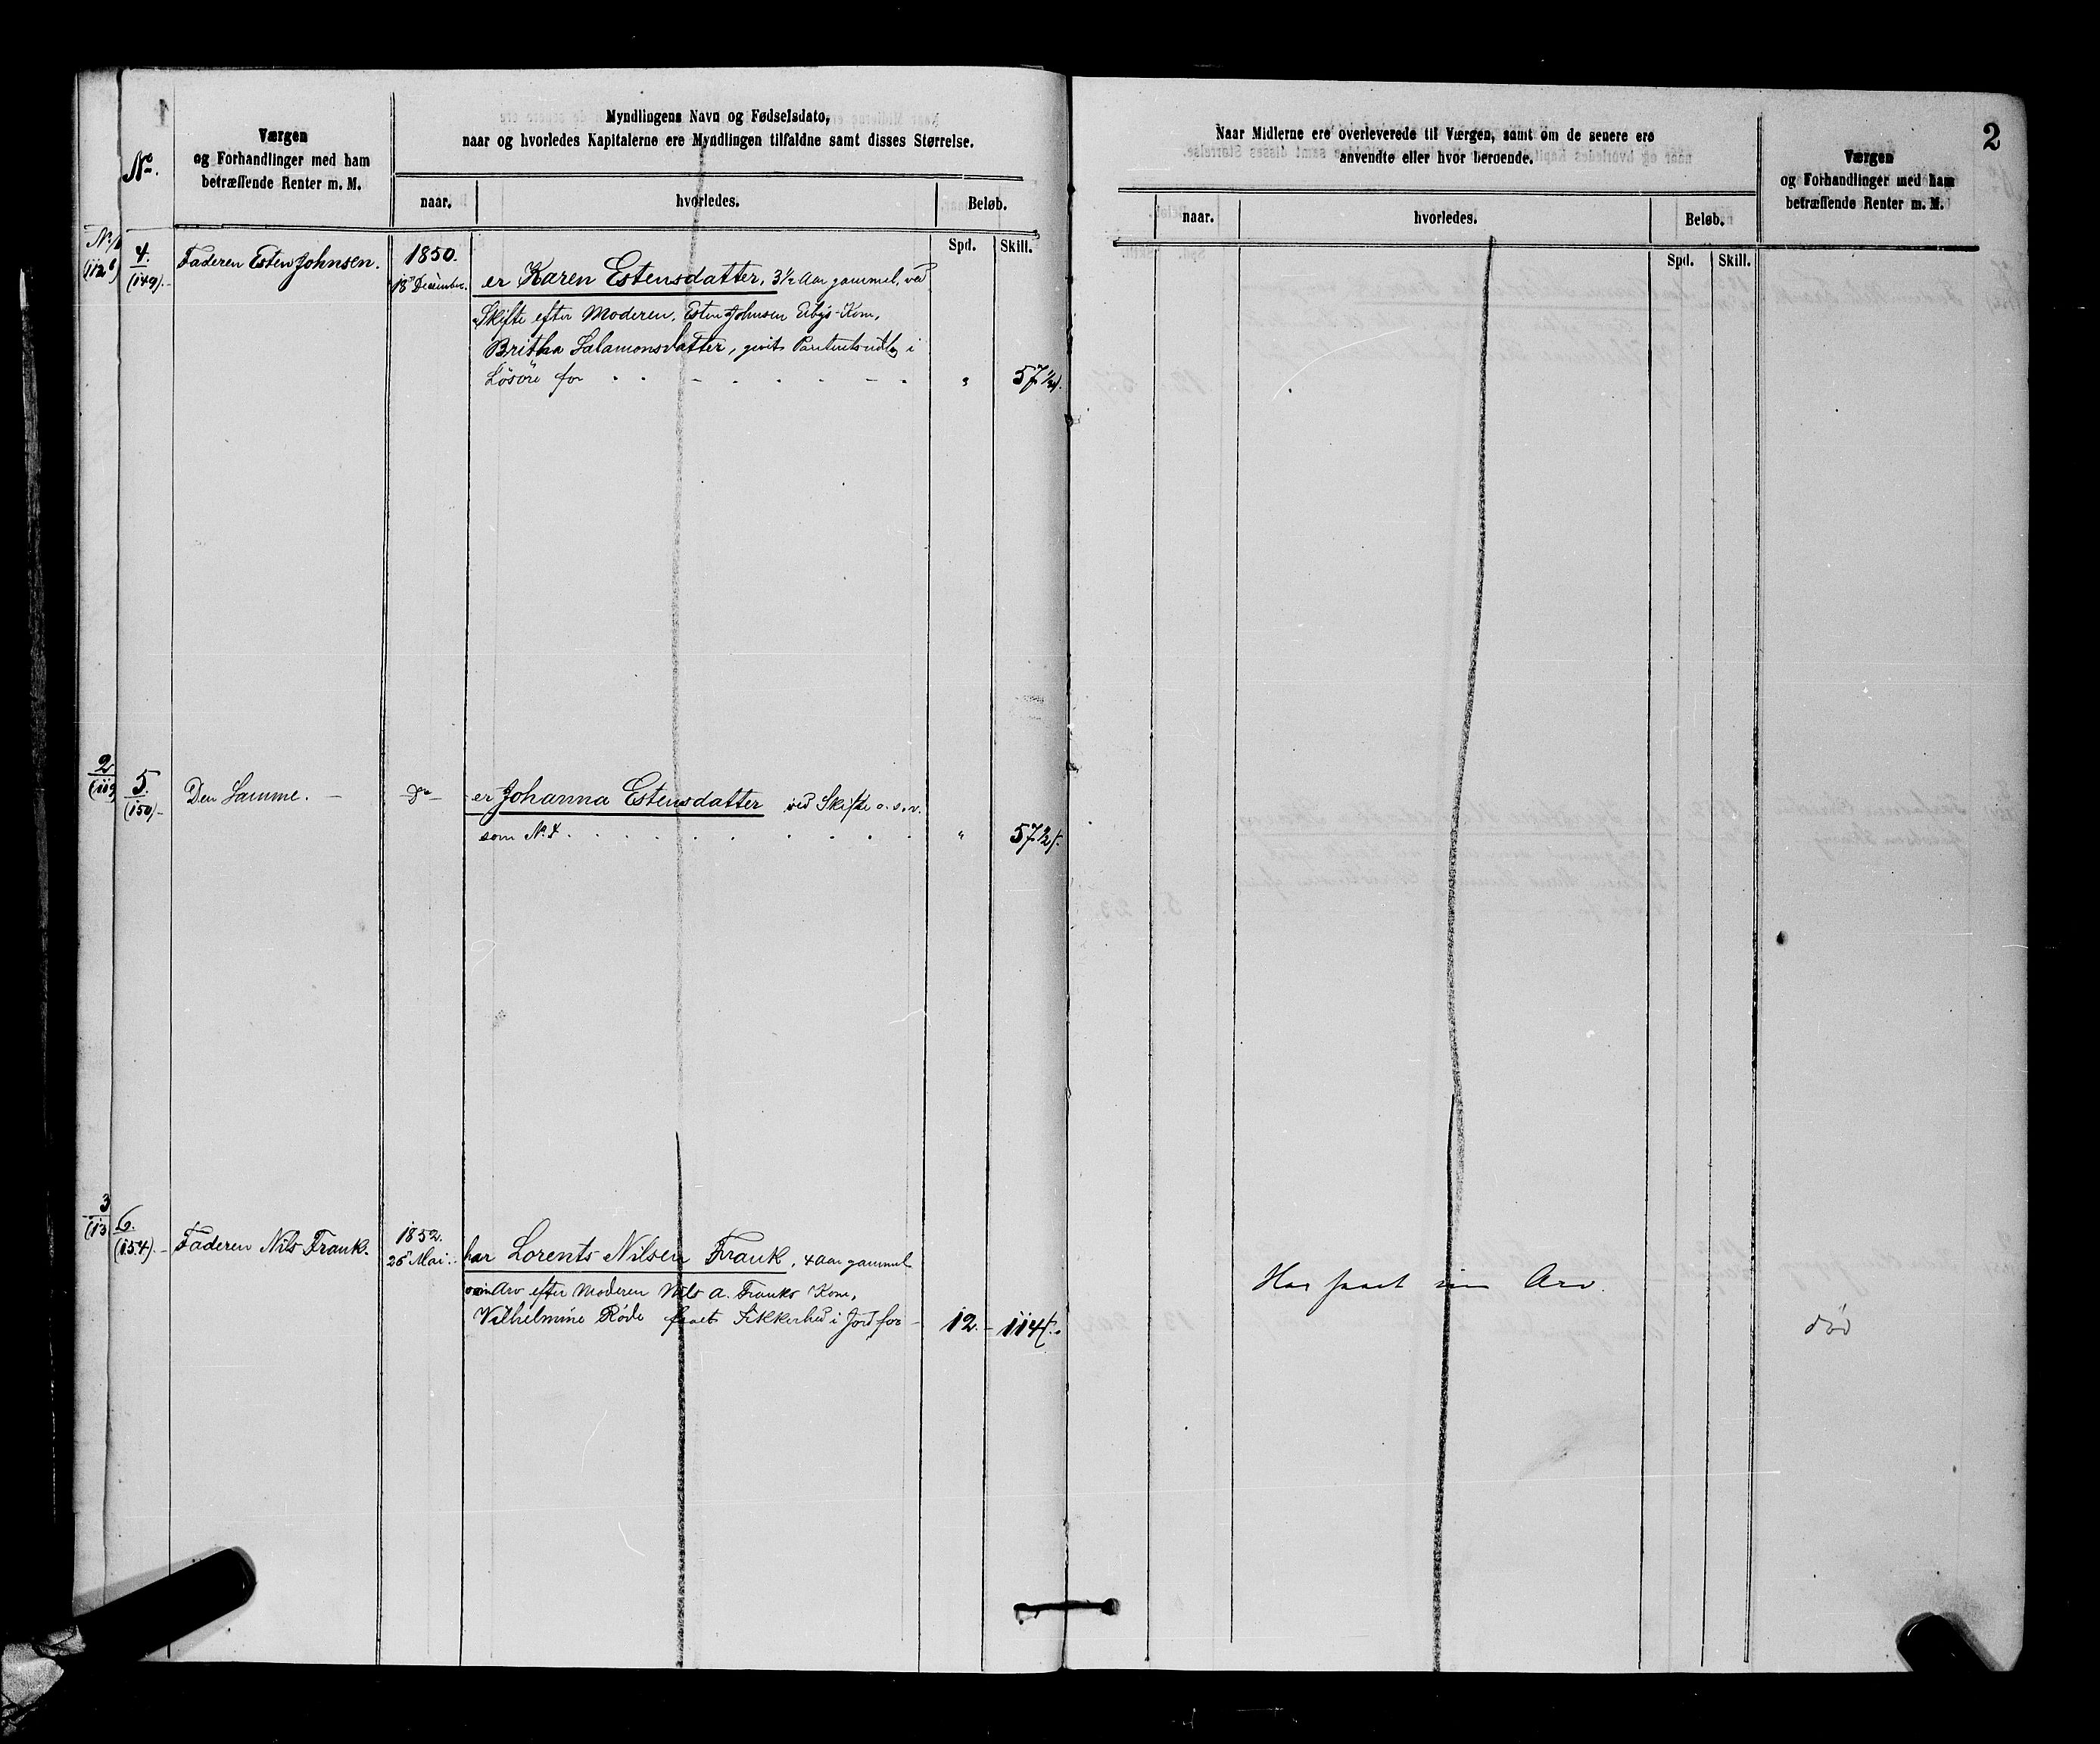 No.
Værgen
og Forhandlinger med ham
betræffende Renter m. M.
Myndlingens Navn og Fødselsdato,
naar og hvorledes Kapitalerne ere Myndlingen tilfaldne samt disses Størrelse.
naar.
hvorledes.
Beløb.
Spd.
Skill.
4.
(149).
Faderen Esten Johnsen.
1850.
18 December.
er Karen Estensdatter, 3½ Aar gammel, ved
Skifte efter Moderen, Esten Johnsen Kone,
Britha Salamonsdatter, givet i
Løsøre for
"
57½
2
5.
(150)
Den Samme.
Do
er Johanna Estensdatter ved Skifte o.s.v.
som No. 4.
"
57½
3
6.
(154).
Faderen Nils Frank.
1852.
25 Mai
har Lorents Nilsen Frank, 4 Aar gammel
Arv efter Moderen Nils A. Franks Kone,
Vilhelmine Røde faaet Sikkerhed i Jord for
12.
114
2
Naar Midlerne ere overleverede til Værgen, samt om de senere ere
anvendte eller hvor beroende.
Værgen
og Forhandlinger med ham
betræffende Renter m. M.
naar.
hvorledes.
Beløb.
Spd.
Skill.
Har faaet sin Arv.
død